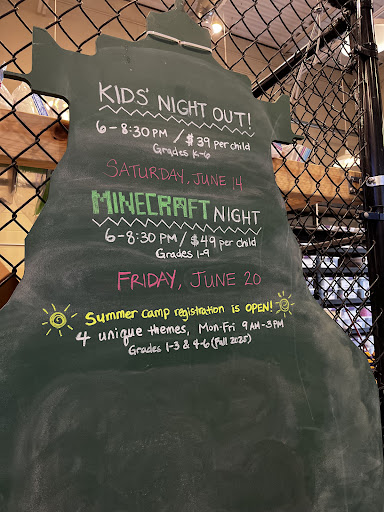 KIDS' NIGHT OUT!
6-8:30 PM / $39 per child
Grades K-6
SATURDAY, JUNE 14
MINECRAFT NIGHT
6-8:30 PM / $49 per child
Grades 1-9
FRIDAY, JUNE 20
Summer camp registration is OPEN!
4 unique themes, Mon-Fri 9AM-3PM
Grades 1-3 & 4-6 (Fall 2025)